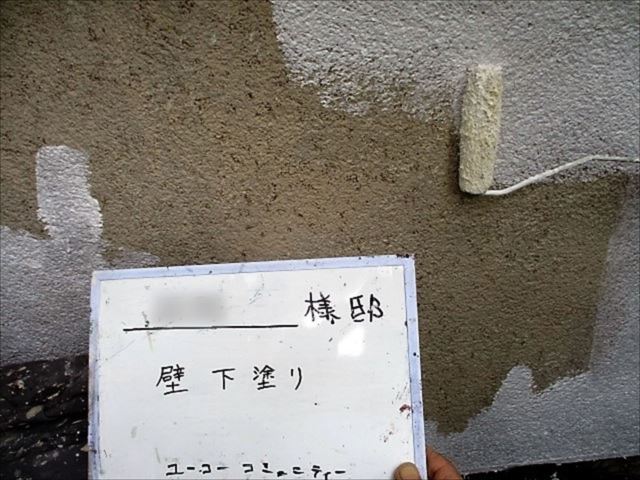 様邸
壁下塗り
ユーコーコミュニティー